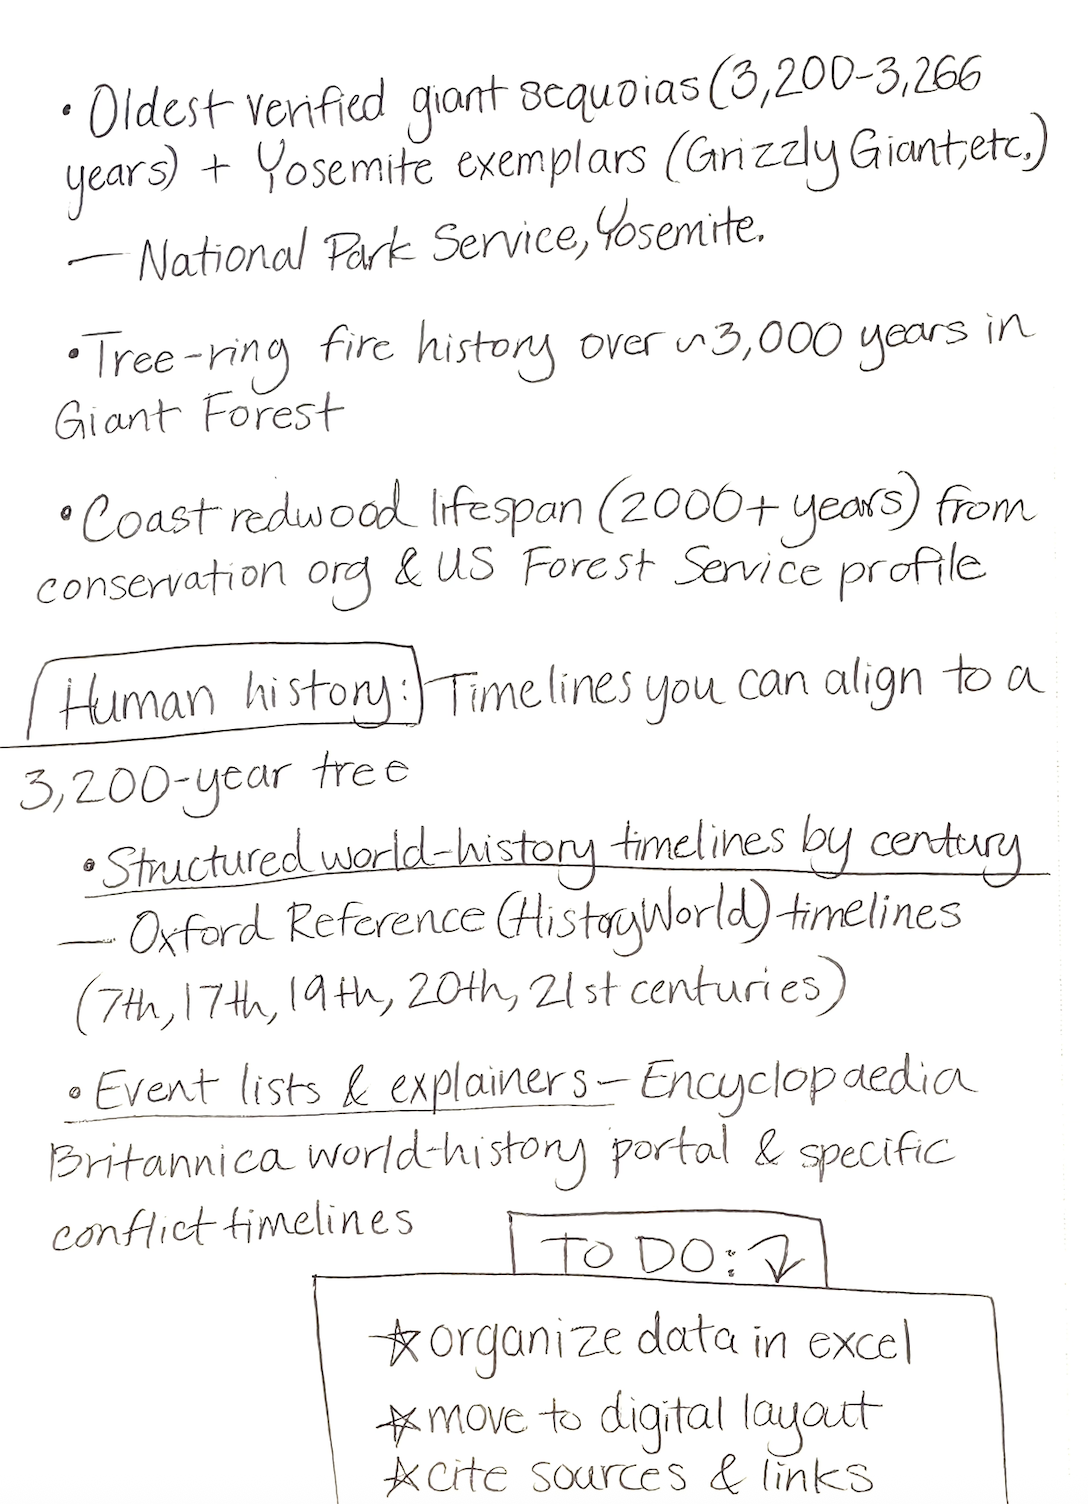 • Oldest verified giant sequoias (3,200-3,266
years) + Yosemite exemplars (Grizzly Giant, etc.)
— National Park Service, Yosemite.
• Tree-ring fire history over ~3,000 years in
Giant Forest
• Coast redwood lifespan (2000+ years) from
conservation org & US Forest Service profile
Human history: Timelines you can align to a
3,200-year tree
• Structured world-history timelines by century
— Oxford Reference (HistoryWorld) timelines
(7th, 17th, 19th, 20th, 21st centuries)
• Event lists & explainers – Encyclopaedia
Britannica world-history portal & specific
conflict timelines
TO DO: ⤵
☆ organize data in excel
☆ move to digital layout
☆ cite sources & links